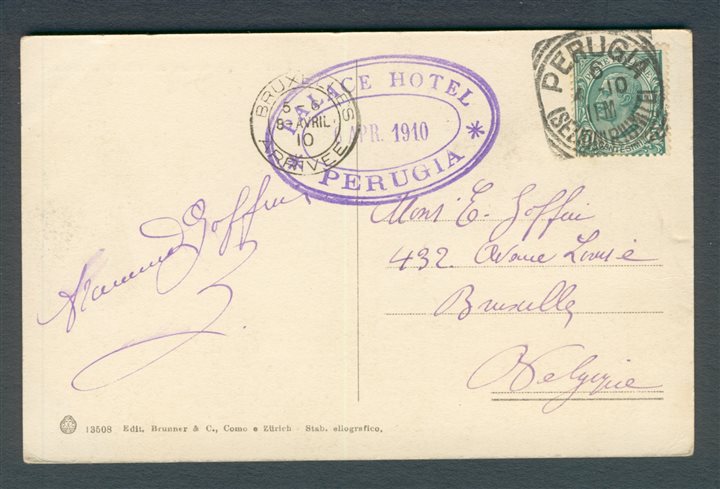 BRUXELLES
5-6
8 AVRIL
10
ARRIVÉE
PALACE HOTEL
6 APR. 1910
* PERUGIA *
PERUGIA
6
10
Goffin
Mons E. Goffin
432. Avenue Louise
Bruxelles
Belgique
13508 Edit. Brunner & C., Como e Zürich - Stab. eliografico,